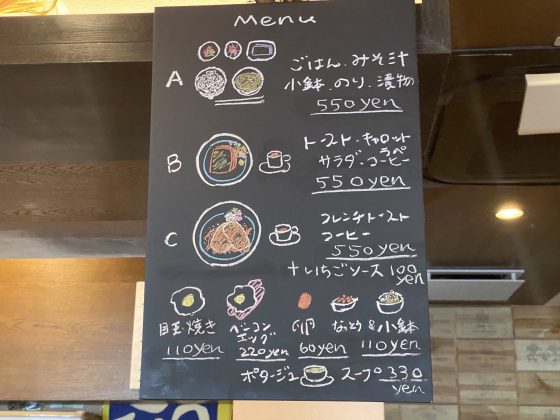 Menu
A
ごはん.みそ汁
小鉢.のり.漬物
550yen
B
トースト.キャロット
ラペ
サラダ.コーヒー
550yen
C
フレンチトースト
コーヒー
550yen
+いちごソース 100yen
目玉焼き
110yen
ベーコンエッグ
220yen
卵
60yen
なっとう&小鉢
110yen
ポタージュ スープ 330yen